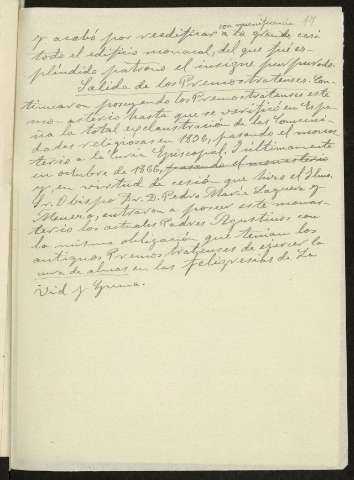 con magnificencia 44
y acabó por reedificar a la grande casi
todo el edificio monacal, del que fué es-
pléndido patrono el insigne purpurado.
Salida de los Premostratenses. Con-
tinuaron poseyendo los Premostratenses este
monasterio hasta que se verificó en Espa-
ña la total exclaustración de las Comuni-
dades religiosas en 1836, pasando el monas-
terio a la Curia Episcopal. I últimamente
en octubre de 1866, pasando el monasterio
y, en virtud de cesión que hizo el Ilmo.
Sr. Obispo Dr. D. Pedro María Laguera y
Menezo, entraron a poseer este monas-
terio los actuales Padres Agustinos con
la misma obligación que tenían los
antiguos Premostratenses de ejercer la
cura de almas en las feligresías de La
Vid y Guma.